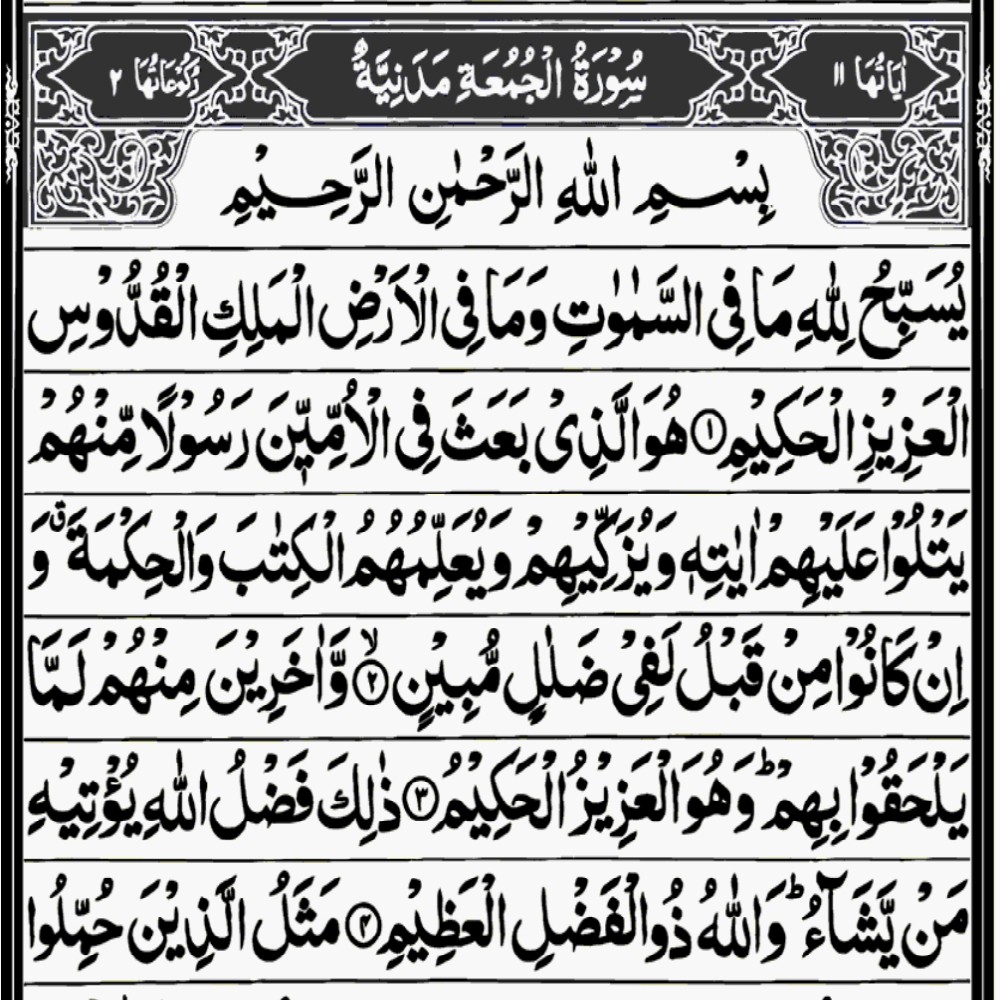 اٰيَاتُهَا ١١ سُوْرَةُ الْجُمُعَةِ مَدَنِيَّةٌ رُكُوْعَاتُهَا ٢
بِسْمِ اللهِ الرَّحْمٰنِ الرَّحِيْمِ
يُسَبِّحُ لِلّٰهِ مَا فِى السَّمٰوٰتِ وَمَا فِى الْاَرْضِ الْمَلِكِ الْقُدُّوْسِ
الْعَزِيْزِ الْحَكِيْمِ ۝۱ هُوَ الَّذِىْ بَعَثَ فِى الْاُمِّيّٖنَ رَسُوْلًا مِّنْهُمْ
يَتْلُوْا عَلَيْهِمْ اٰيٰتِهٖ وَيُزَكِّيْهِمْ وَيُعَلِّمُهُمُ الْكِتٰبَ وَالْحِكْمَةَ ۗ وَ
اِنْ كَانُوْا مِنْ قَبْلُ لَفِىْ ضَلٰلٍ مُّبِيْنٍ ۝۲ۙ وَّاٰخَرِيْنَ مِنْهُمْ لَمَّا
يَلْحَقُوْا بِهِمْ ؕ وَهُوَ الْعَزِيْزُ الْحَكِيْمُ ۝۳ ذٰلِكَ فَضْلُ اللهِ يُؤْتِيْهِ
مَنْ يَّشَآءُ ؕ وَاللهُ ذُو الْفَضْلِ الْعَظِيْمِ ۝۴ مَثَلُ الَّذِيْنَ حُمِّلُوا